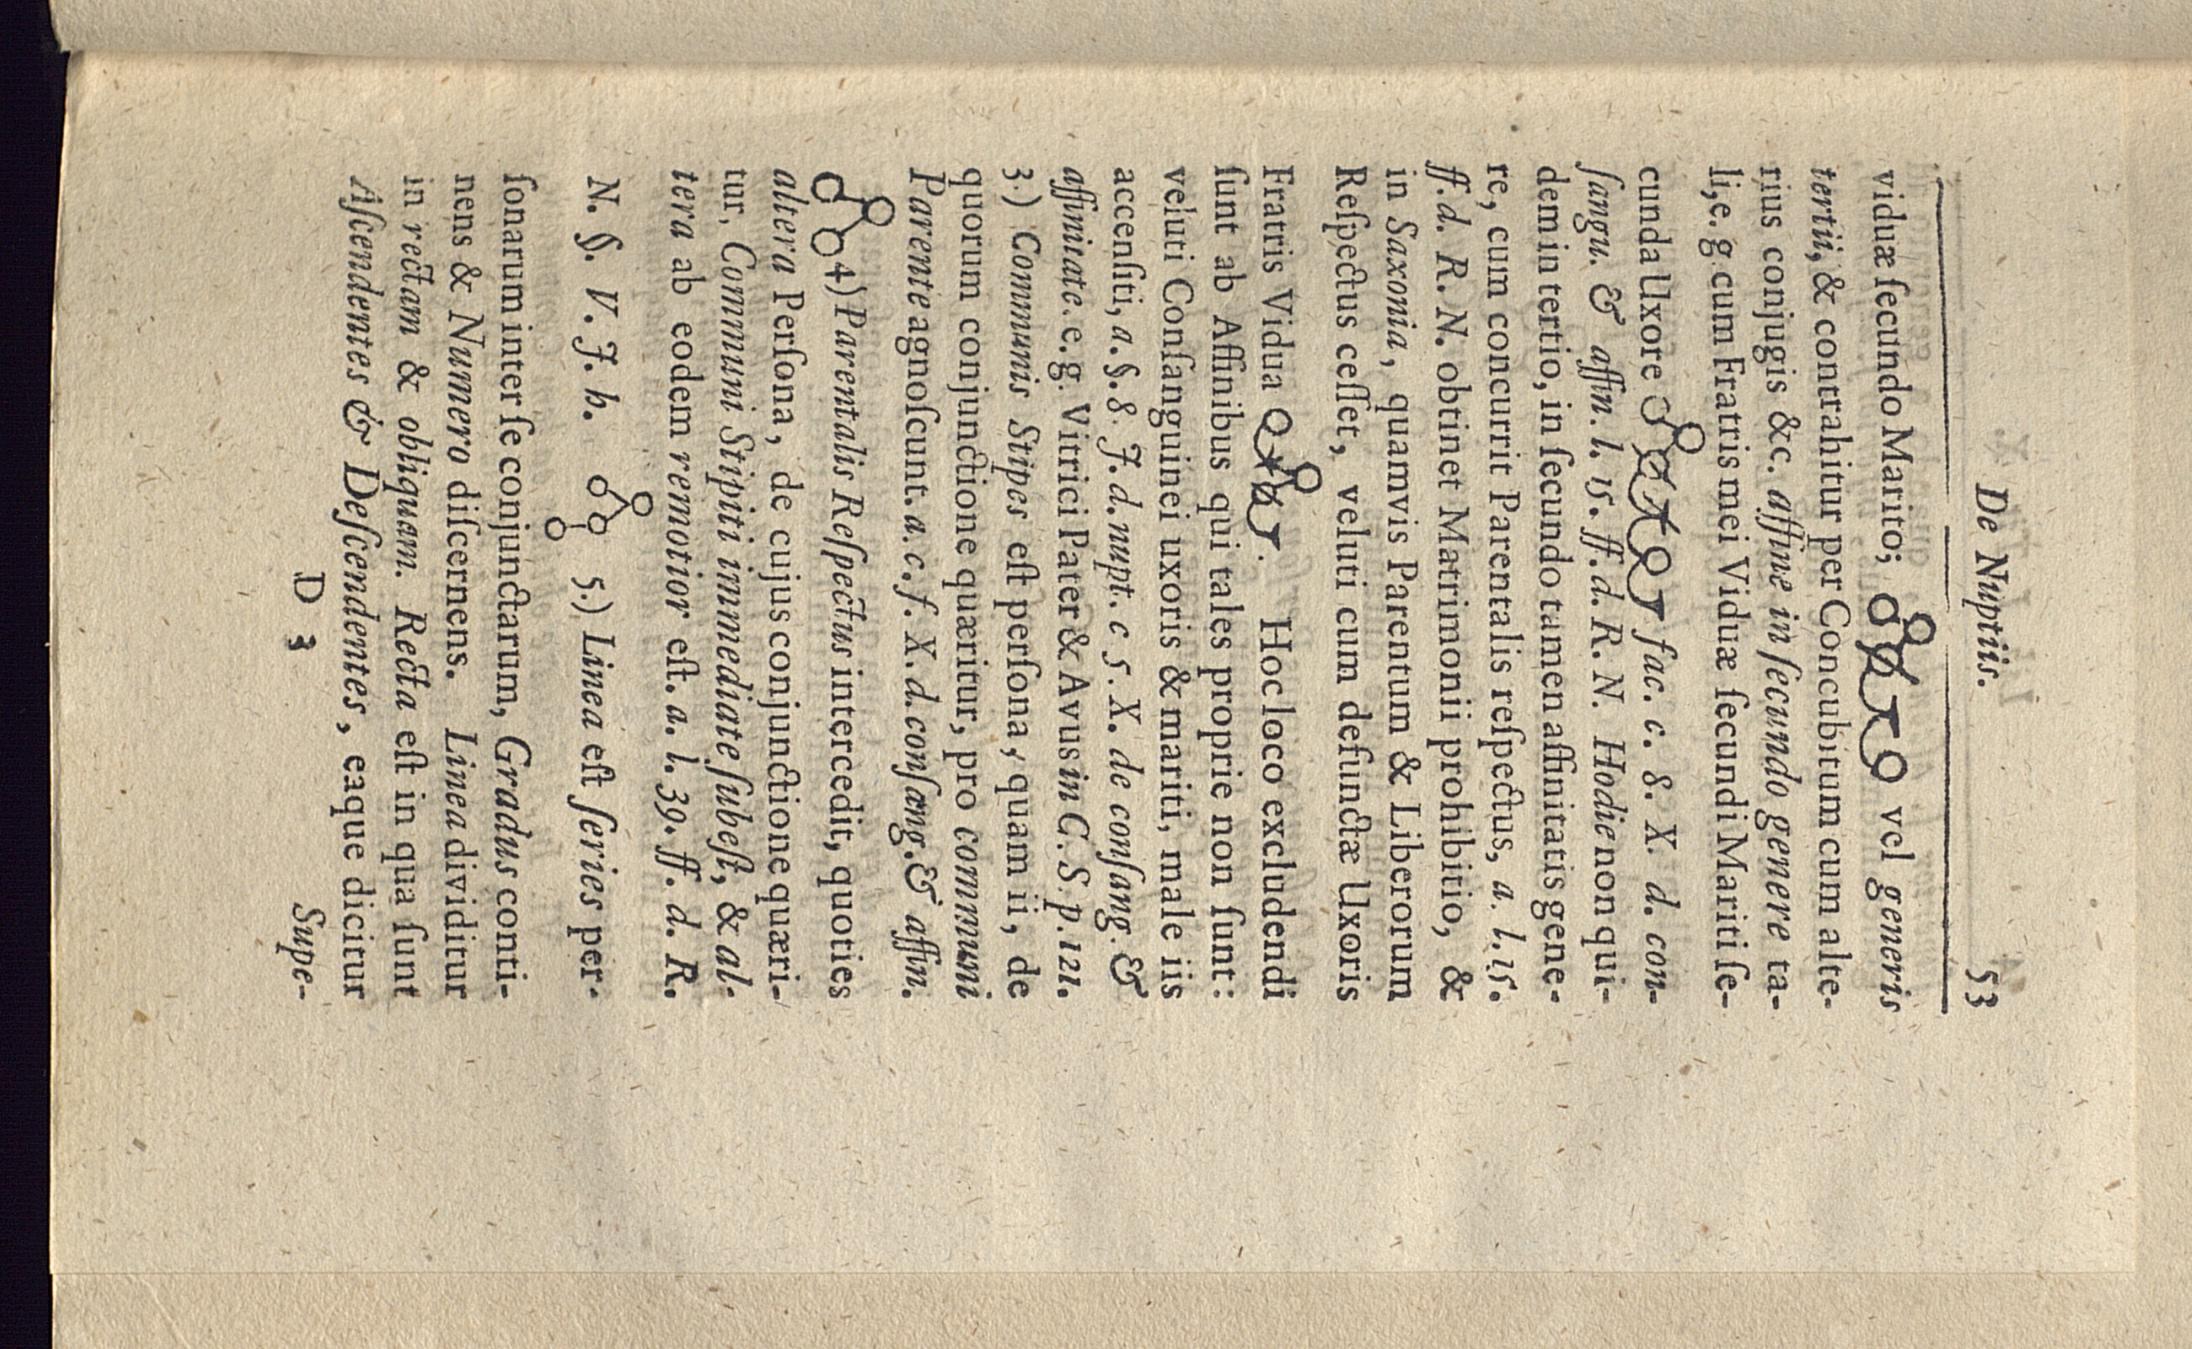 De Nuptiis. 53
viduæ ſecundo Marito; vel generis
tertii, & contrahitur per Concubitum cum alte-
rius conjugis &c. affine in ſecundo genere ta-
li, e. g cum Fratris mei Viduæ ſecundi Mariti ſe-
cunda Uxore fac. c. 8. X. d. con-
ſangu. & affin. l. 15. ff. d. R. N. Hodie non qui-
dem in tertio, in ſecundo tamen affinitatis gene-
re, cum concurrit Parentalis reſpectus, a. l. 15.
ff. d. R. N. obtinet Matrimonii prohibitio, &
in Saxonia, quamvis Parentum & Liberorum
Reſpectus ceſſet, veluti cum defunctæ Uxoris
Fratris Vidua . Hoc loco excludendi
ſunt ab Affinibus qui tales proprie non ſunt:
veluti Conſanguinei uxoris & mariti, male iis
accenſiti, a. §. 8. J. d. nupt. c 5. X. de conſang. &
affinitate. e. g. Vitrici Pater & Avus in C. S. p. 121.
3.) Communis Stipes eſt perſona, quam ii, de
quorum conjunctione quæritur, pro communi
Parente agnoſcunt. a. c. f. X. d. conſang. & affin.
4) Parentalis Reſpectus intercedit, quoties
altera Perſona, de cujus conjunctione quæri-
tur, Communi Stipiti immediate ſubeſt, & al-
tera ab eodem remotior eſt. a. l. 39. ff. d. R.
N. §. V. J. h. 5.) Linea eſt ſeries per-
ſonarum inter ſe conjunctarum, Gradus conti-
nens & Numero diſcernens. Linea dividitur
in rectam & obliquam. Recta eſt in qua ſunt
Aſcendentes & Deſcendentes, eaque dicitur
D 3 Supe-